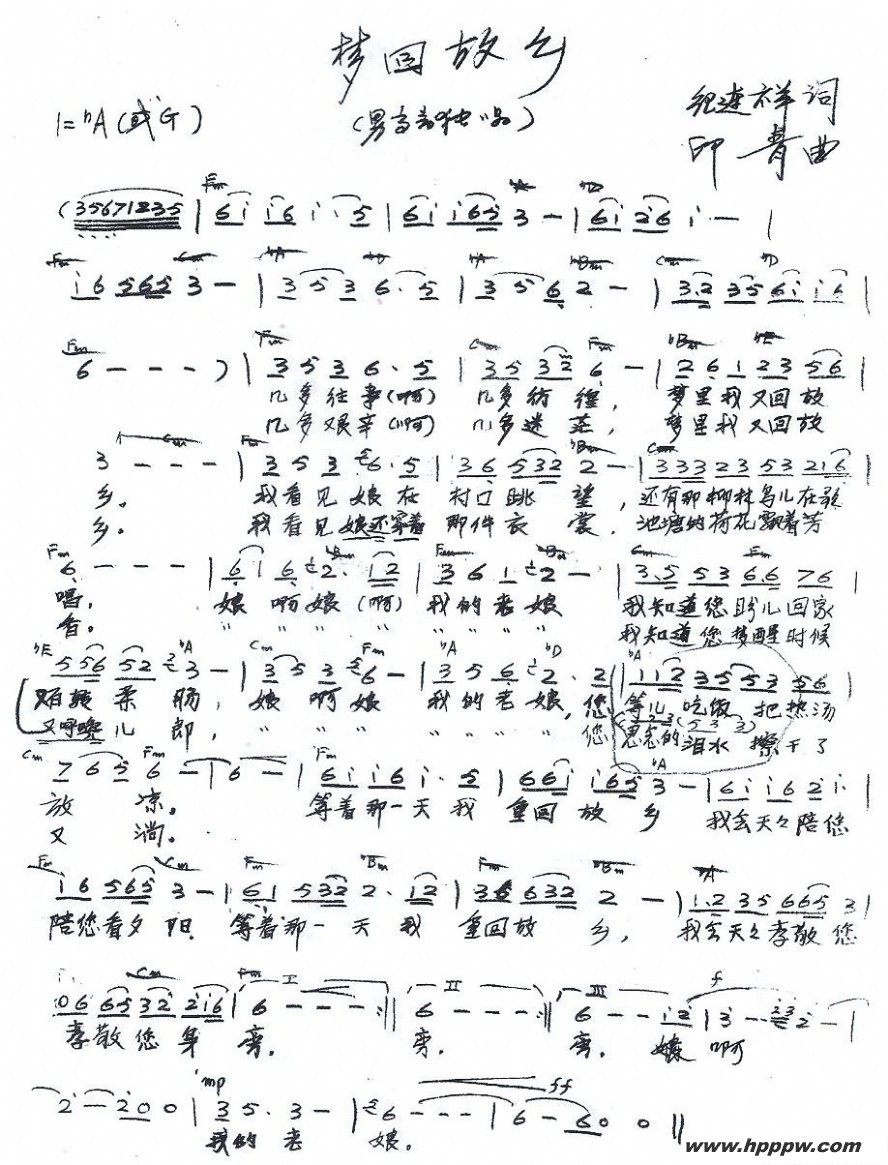 梦回故乡
(男高音独唱)
1=♭A(或G)
纪连祥词
印青曲
(35671235 | 6i i6 i· 5 | 6i i65 3 - | 6i 2i6 i - |
i6 565 3 - | 3 5 3 6· 5 | 3 5 6 2 - | 3·2 35 6i i6 |
6 - - - ) | 3 5 3 6· 5 | 3 5 32 6 - | 2 6 1 2 3 56 |
几多往事(啊) 几多彷徨, 梦里我又回故
几多艰辛(啊) 几多迷茫, 梦里我又回故
3 - - - | 3 5 3 6· 5 | 36 532 2 - | 333 23 53 216 |
乡。 我看见娘在 村口眺 望, 还有那柳林鸟儿在歌
乡。 我看见娘还穿着 那件衣 裳, 池塘的荷花飘着芳
6 - - - | 6i 6 2· 12 | 3 6 1 2 - | 3·5 53 66 76 |
唱, 娘啊娘(啊) 我的老娘 我知道您盼儿回家
香。 我知道您梦醒时候
556 52 3 - | 3 5 3 6 - | 3 5 6 2· 2 | 112 35 553 56 |
柔肠, 娘啊娘 我的老娘, 您 等儿吃饭把热汤
又呼唤儿郎, 您 思念的泪水擦干了
7 6 5 6 - | 6 - | 6i i6 i· 5 | 66i i65 3 - | 6i i6 2i· |
放凉。 等着那一天我 重回故乡 我会天天陪您
又淌。
i6 565 3 - | 6i 532 2· 12 | 36 632 2 - | 1·2 35 665 3 |
陪您看夕阳, 等着那一天我 重回故乡, 我会天天孝敬您
06 65 32 216 | 6 - - - :‖ 6 - - - :‖ 6 - - i2 | 3 - - 2 - |
孝敬您身旁。 旁。 旁。 娘啊
2 - 2 0 0 | 3 5· 3 - | 6 - - - | 6 - 6 0 0 ‖
我的老娘。
www.hpppw.com